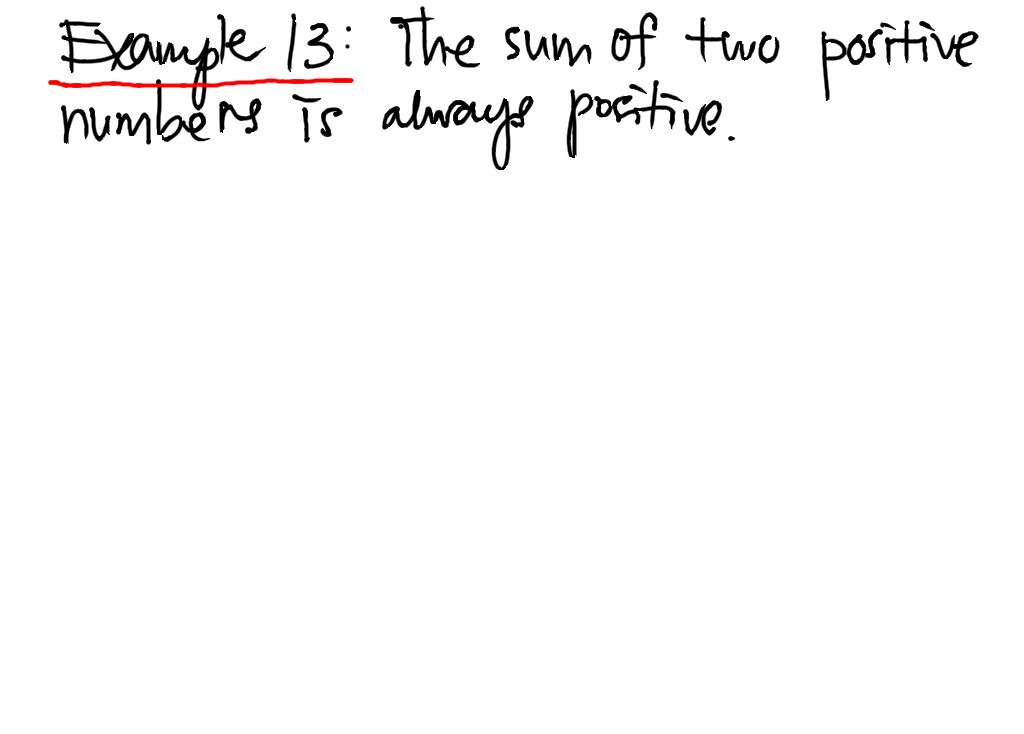 Example 13: The sum of two positive
numbers is always positive.